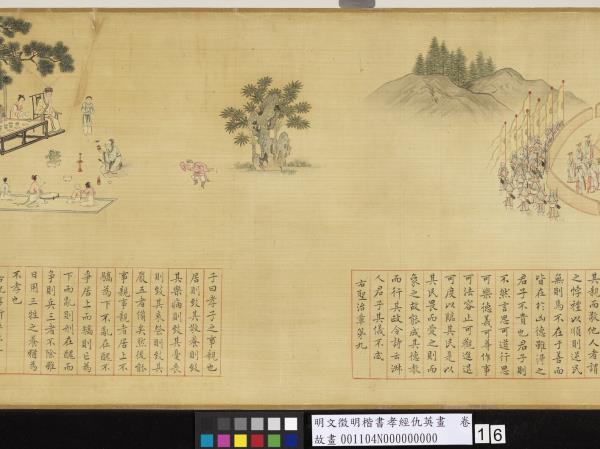 其親而敬他人者謂
之悖禮以順則逆民
無則焉不在于善而
皆在於凶德雖得之
君子不貴也君子則
不然言思可道行思
可樂德義可尊作事
可法容止可觀進退
可度以臨其民是以
其民畏而愛之則而
象之故能成其德教
而行其政令詩云淑
人君子其儀不忒
右聖治章第九
子曰孝子之事親也
居則致其敬養則致
其樂病則致其憂喪
則致其哀祭則致其
嚴五者備矣然後能
事親事親者居上不
驕為下不亂在醜不
爭居上而驕則亡為
下而亂則刑在醜而
爭則兵三者不除雖
日用三牲之養猶為
不孝也
明文徵明楷書孝經仇英畫 卷
故畫 001104N000000000
16